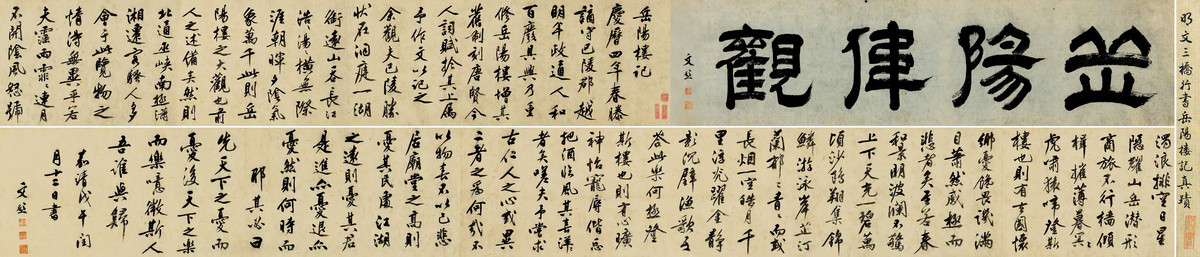 明文三橋行書岳陽樓記真蹟
岳陽偉觀
文彭
岳陽樓記
慶曆四年春滕
謫守巴陵郡越
明年政通人和
百廢具興乃重
修岳陽樓增其
舊制刻唐賢今
人詞賦於其上屬
予作文以記之
余觀夫巴陵勝
狀在洞庭一湖
銜遠山吞長江
浩浩湯湯橫無際
涯朝暉夕陰氣
象萬千此則岳
陽樓之大觀也前
人之述備矣然則
北通巫峽南極瀟
湘遷客騷人多
會于此覽物之
情得無異乎若
夫霪雨霏霏連月
不開陰風怒號
濁浪排空日星
隱耀山岳潛形
商旅不行檣傾
楫摧薄暮冥冥
虎嘯猿啼登斯
樓也則有去國懷
鄉憂讒畏譏滿
目蕭然感極而
悲者矣至若春
和景明波瀾不驚
上下天光一碧萬
頃沙鷗翔集錦
鱗游泳岸芷汀
蘭郁郁青青而或
長煙一空皓月千
里浮光耀金靜
影沉璧漁歌互
答此樂何極登
斯樓也則有心曠
神怡寵辱偕忘
把酒臨風其喜洋
者矣嗟夫予嘗求
古仁人之心或異
二者之為何哉不
以物喜不以己悲
居廟堂之高則
憂其民處江湖
之遠則憂其君
是進亦憂退亦
憂然則何時而
耶其必曰
先天下之憂而
憂後天下之樂
而樂噫微斯人
吾誰與歸
嘉靖戊午閏
月十二日書
文彭